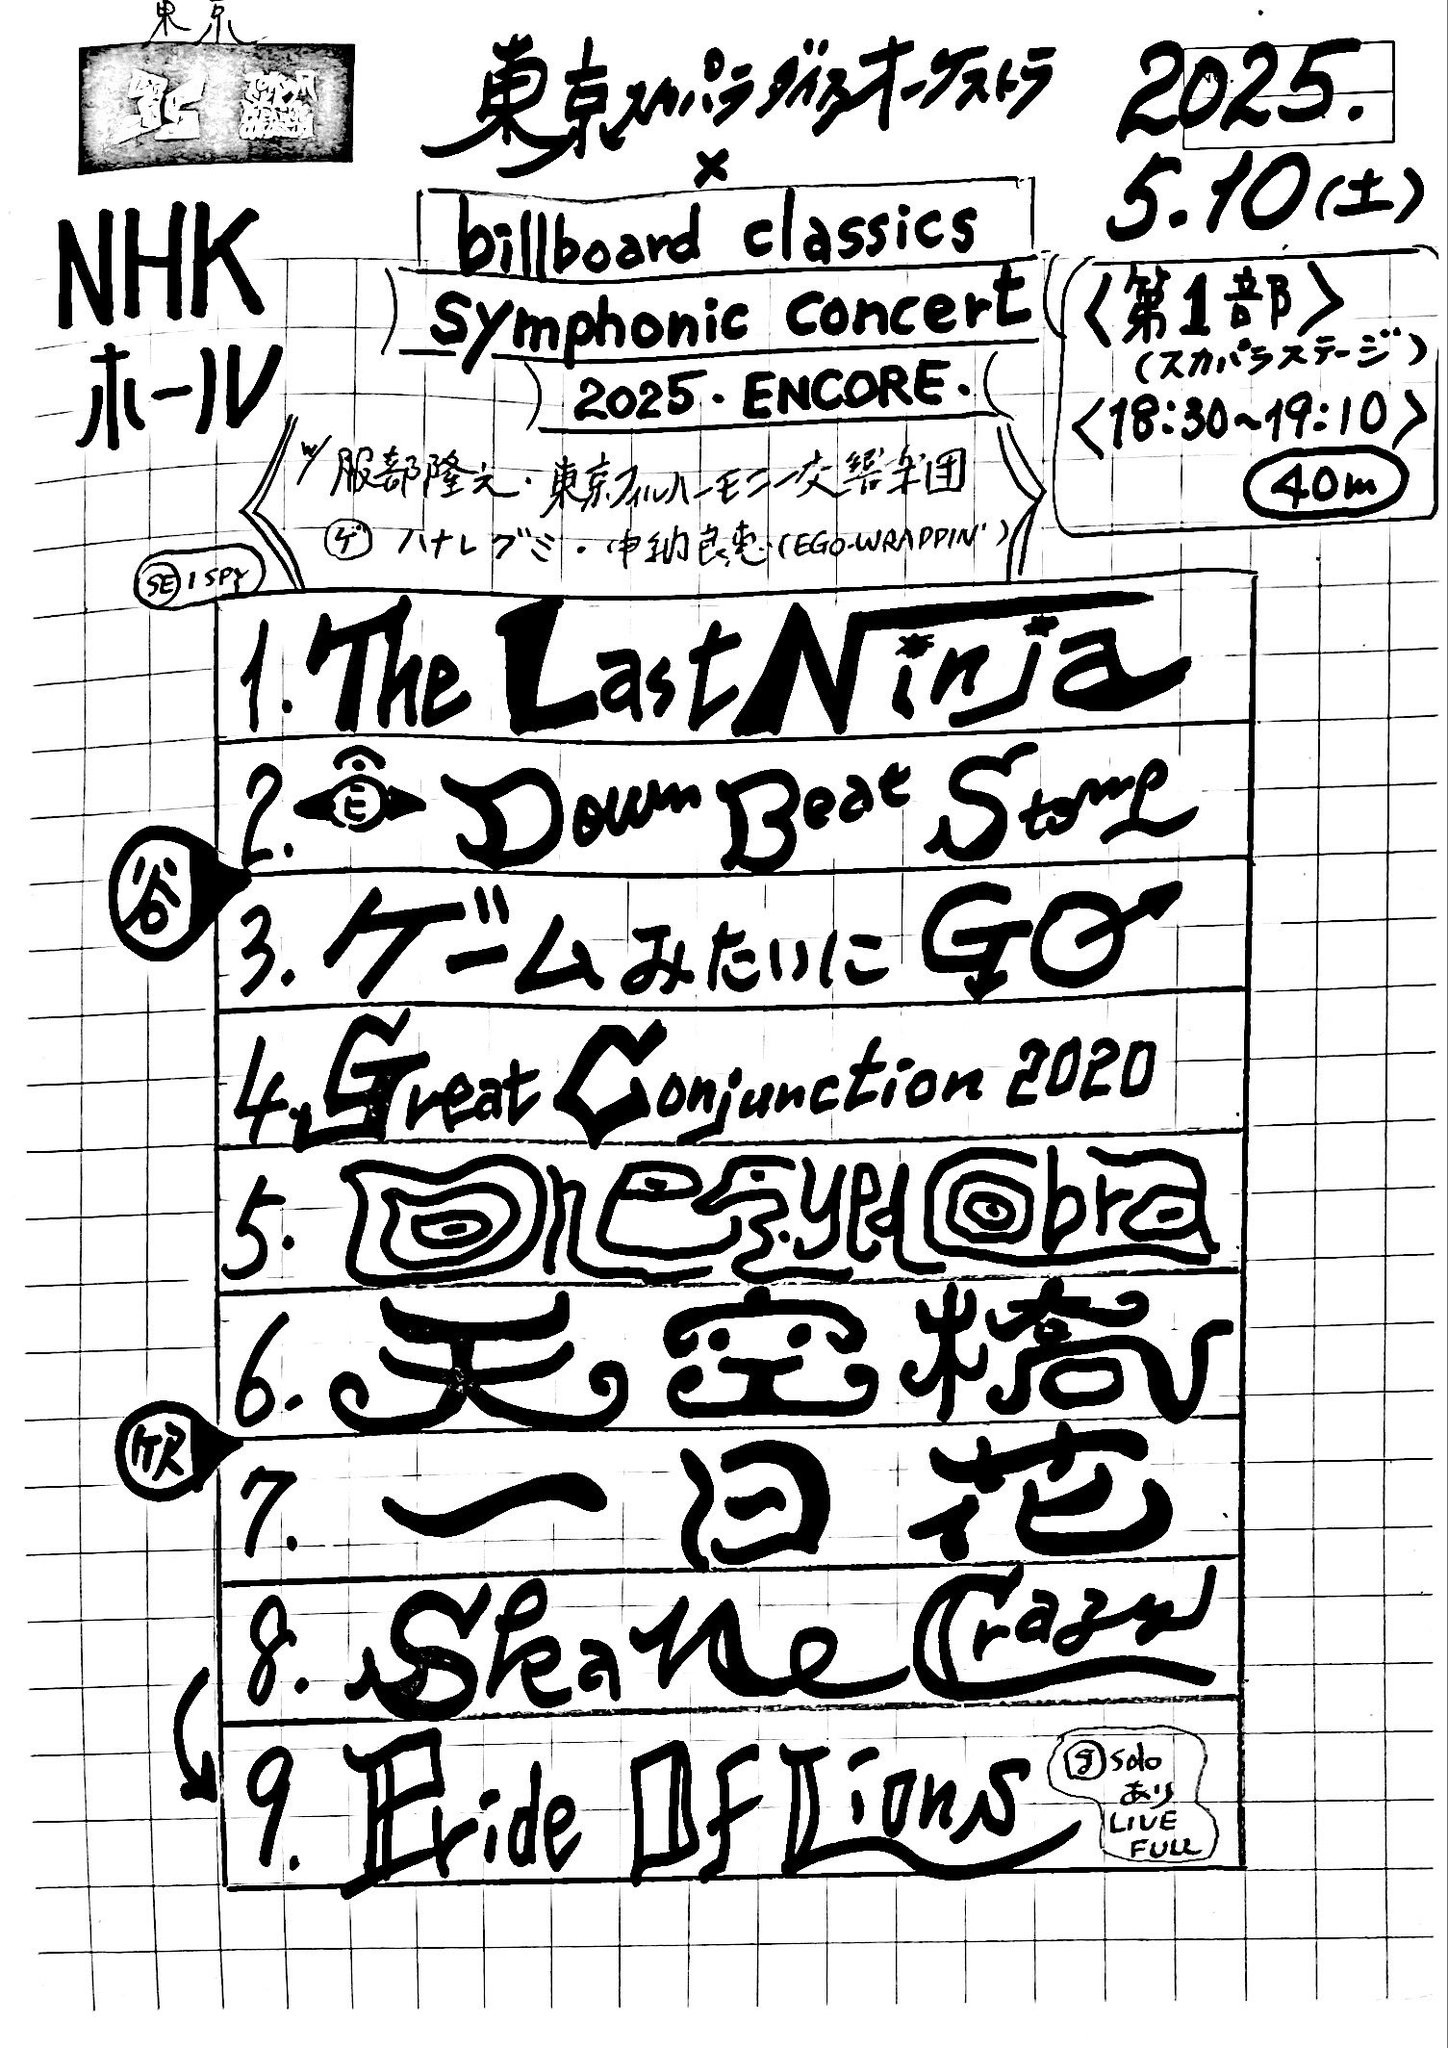 東京
東京スカパラダイスオーケストラ
×
billboard classics
symphonic concert
2025. ENCORE.
2025.
5.10(土)
NHK
ホール
〈第1部〉
(スカパラステージ)
〈18:30〜19:10〉
40m
w/ 服部隆之・東京フィルハーモニー交響楽団
ゲ ハナレグミ・中納良恵(EGO-WRAPPIN')
SE I SPY
1. The Last Ninja
2. Down Beat Stomp
谷
3. ゲームみたいにGO
4. Great Conjunction 2020
5. One Eyed Cobra
6. 天空橋
7. 一日花
8. Ska Me Crazy
9. Pride Of Lions
solo
あり
LIVE
FULL